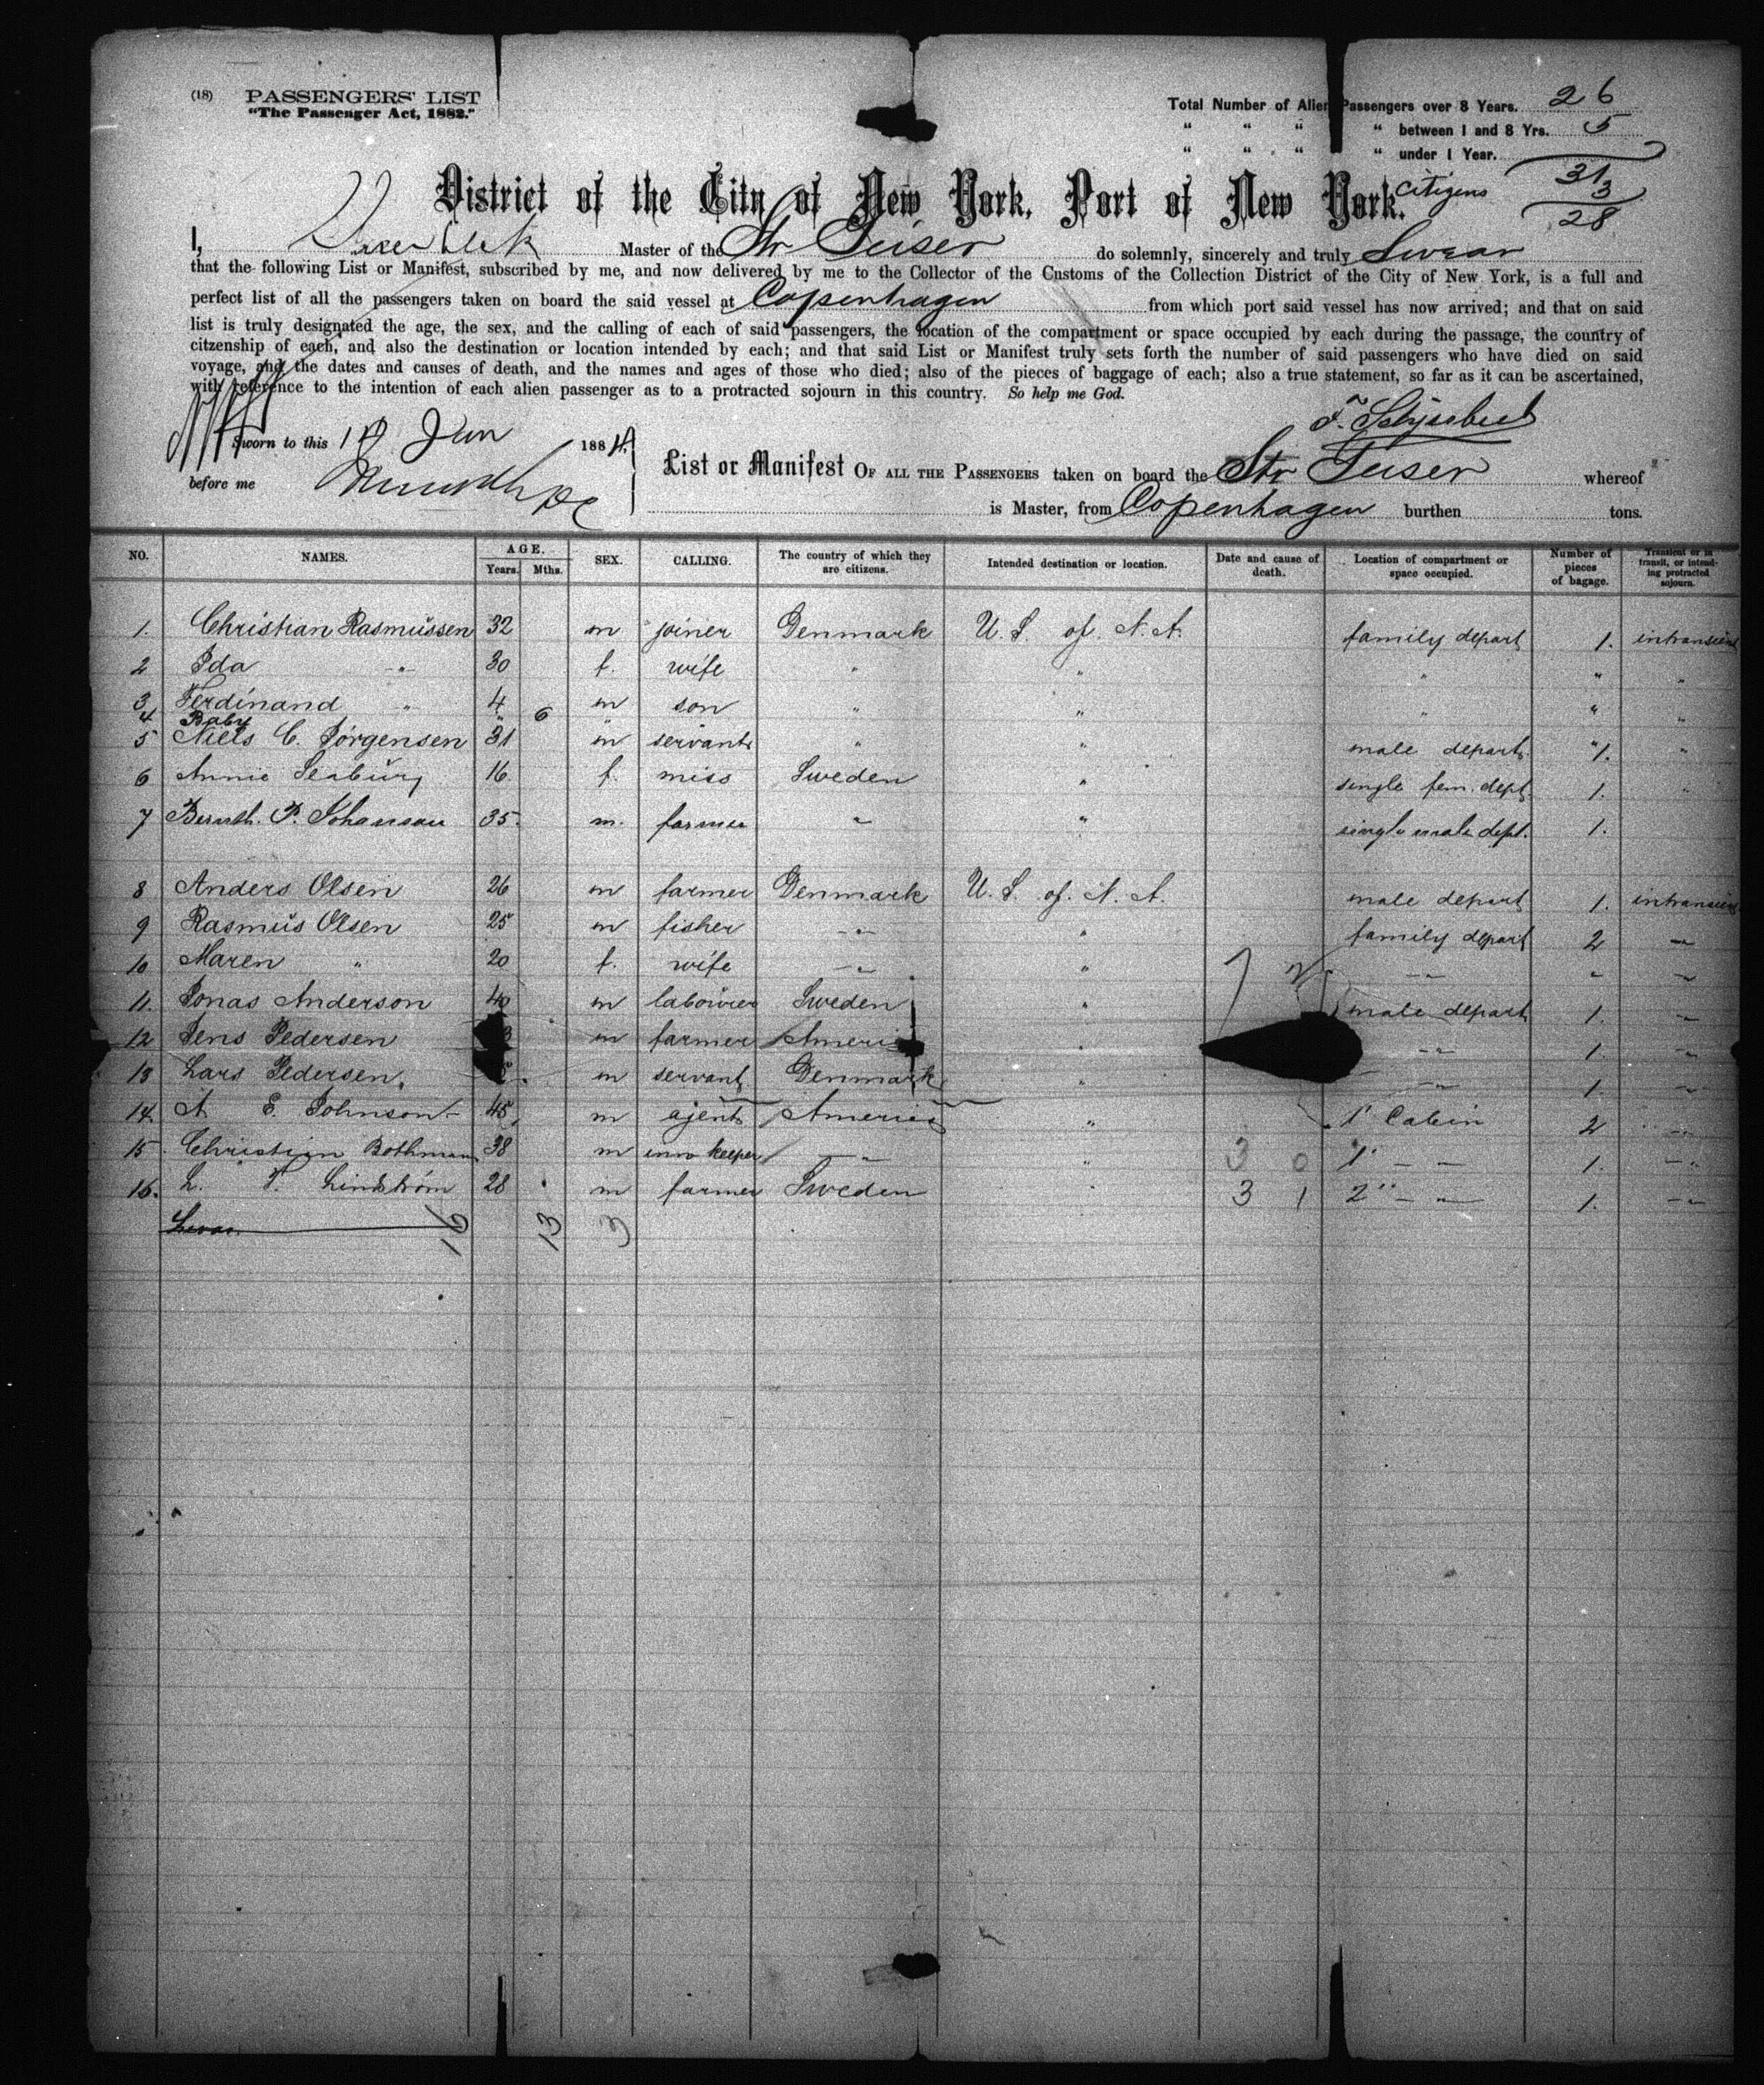 (18) PASSENGERS' LIST
"The Passenger Act, 1882."
Total Number of Alien Passengers over 8 Years. 26
" " " " between 1 and 8 Yrs. 5
" " " " under 1 Year.
31
citizens 3
28
District of the City of New York, Port of New York.
I, Master of the Str Geiser do solemnly, sincerely and truly Swear
that the following List or Manifest, subscribed by me, and now delivered by me to the Collector of the Customs of the Collection District of the City of New York, is a full and
perfect list of all the passengers taken on board the said vessel at Copenhagen from which port said vessel has now arrived; and that on said
list is truly designated the age, the sex, and the calling of each of said passengers, the location of the compartment or space occupied by each during the passage, the country of
citzenship of each, and also the destination or location intended by each; and that said List or Manifest truly sets forth the number of said passengers who have died on said
voyage, and the dates and causes of death, and the names and ages of those who died; also of the pieces of baggage of each; also a true statement, so far as it can be ascertained,
with reference to the intention of each alien passenger as to a protracted sojourn in this country. So help me God.
Sworn to this Jun 1884
before me
List or Manifest OF ALL THE PASSENGERS taken on board the Str Geiser whereof
is Master, from Copenhagen burthen tons.
NO. NAMES. AGE. Years. Mths. SEX. CALLING. The country of which they are citizens. Intended destination or location. Date and cause of death. Location of compartment or space occupied. Number of pieces of bagage. Transient or in transit, or intending protracted sojourn.
1. Christian Rasmüssen 32 m joiner Denmark U. S. of. N. A. family depart 1. intransient
2 Ida " 30 f. wife " " " " "
3 Ferdinand " 4 m son " " " " "
4 Baby " 6
5 Niels C. Jörgensen 31 m servant " " male depart. 1. "
6 Annie Seabürg 16 f. miss Sweden " single fem. dept. 1. "
7 P. Johanson 35. m. farmer " " single male dept. 1.
8 Anders Olsen 26 m farmer Denmark U. S. of. N. A. male depart 1. intransient
9 Rasmüs Olsen 25 m fisher " " family depart 2 "
10 Maren " 20 f. wife " " " " "
11. Jonas Anderson 40 m laboürer Sweden " male depart 1. "
12 Jens Pedersen m farmer Ameri " " 1. "
13 Lars Pedersen. m servant Denmark " " 1. "
14. A. E. Johnson 45 m agent America " 1' Cabin 2 "
15 Christian Bothman 38 m inn keeper " " 3 0 1' " 1. "
16. L. Lindström 28 m farmer Sweden " 3 1 2'' " 1. "
16 13 3